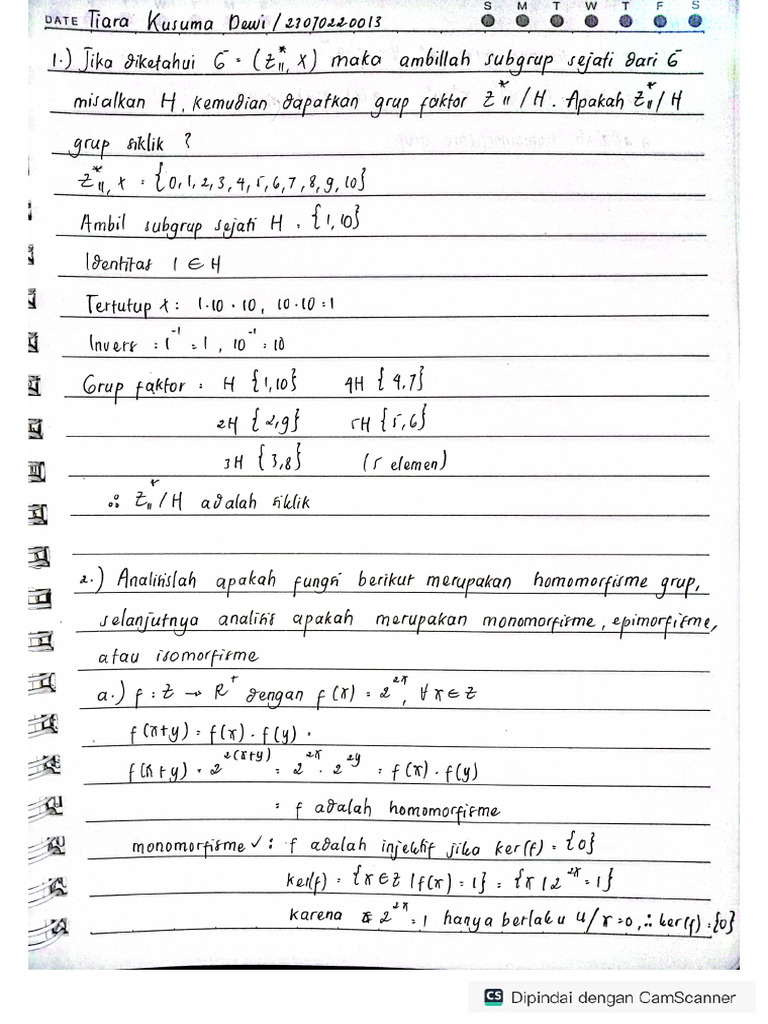 S M T W T F S
DATE Tiara Kusuma Dewi / 23070220013
1.) Jika diketahui G = (Z*₁₁, X) maka ambillah subgrup sejati dari G
misalkan H, kemudian dapatkan grup faktor Z*₁₁ / H. Apakah Z*₁₁ / H
grup siklik ?
Z*₁₁, x = {0, 1, 2, 3, 4, 5, 6, 7, 8, 9, 10}
Ambil subgrup sejati H = {1, 10}
Identitas 1 ∈ H
Tertutup x : 1·10 = 10, 10·10 = 1
Invers : 1⁻¹ = 1, 10⁻¹ = 10
Grup faktor = H {1, 10} 4H {4, 7}
2H {2, 9} 5H {5, 6}
3H {3, 8} (5 elemen)
∴ Z*₁₁ / H adalah siklik
2.) Analisislah apakah fungsi berikut merupakan homomorfisme grup,
selanjutnya analisis apakah merupakan monomorfisme, epimorfisme,
atau isomorfisme
a.) f : Z → R⁺ dengan f(x) = 2²ˣ, ∀ x ∈ Z
f(x+y) = f(x) · f(y) ·
f(x+y) = 2²⁽ˣ⁺ʸ⁾ = 2²ˣ · 2²ʸ = f(x) · f(y)
= f adalah homomorfisme
monomorfisme ✓ : f adalah injektif jika ker(f) = {0}
ker(f) = {x ∈ Z | f(x) = 1} = {x | 2²ˣ = 1}
karena 2²ˣ = 1 hanya berlaku u/ x=0, ∴ ker(f) = {0}
CS Dipindai dengan CamScanner